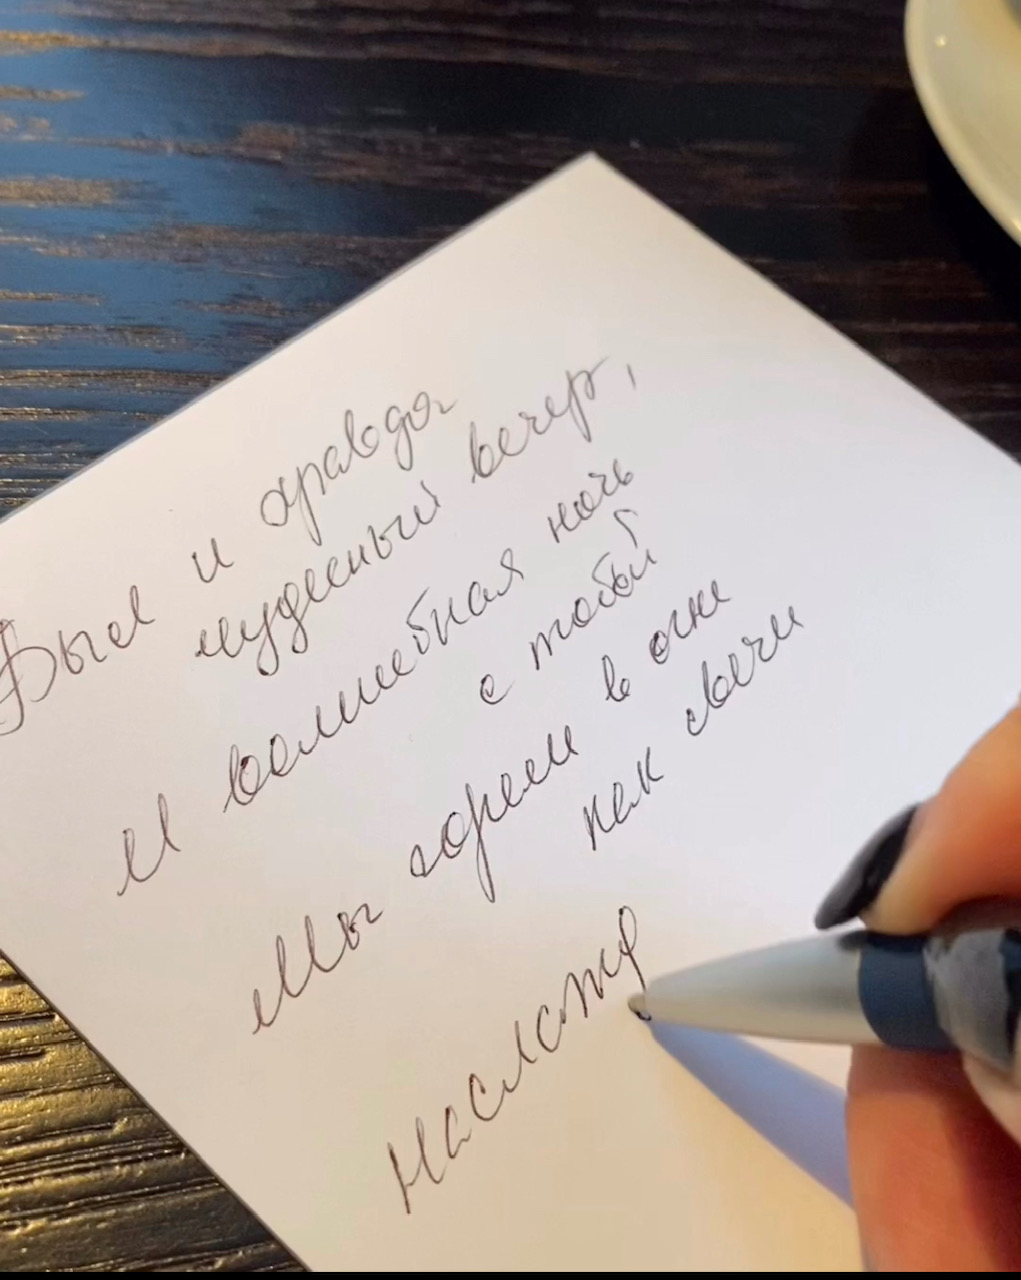 Был и правда
чудесный вечер,
И волшебная ночь
с тобой
Мы горели в огне
как свечи